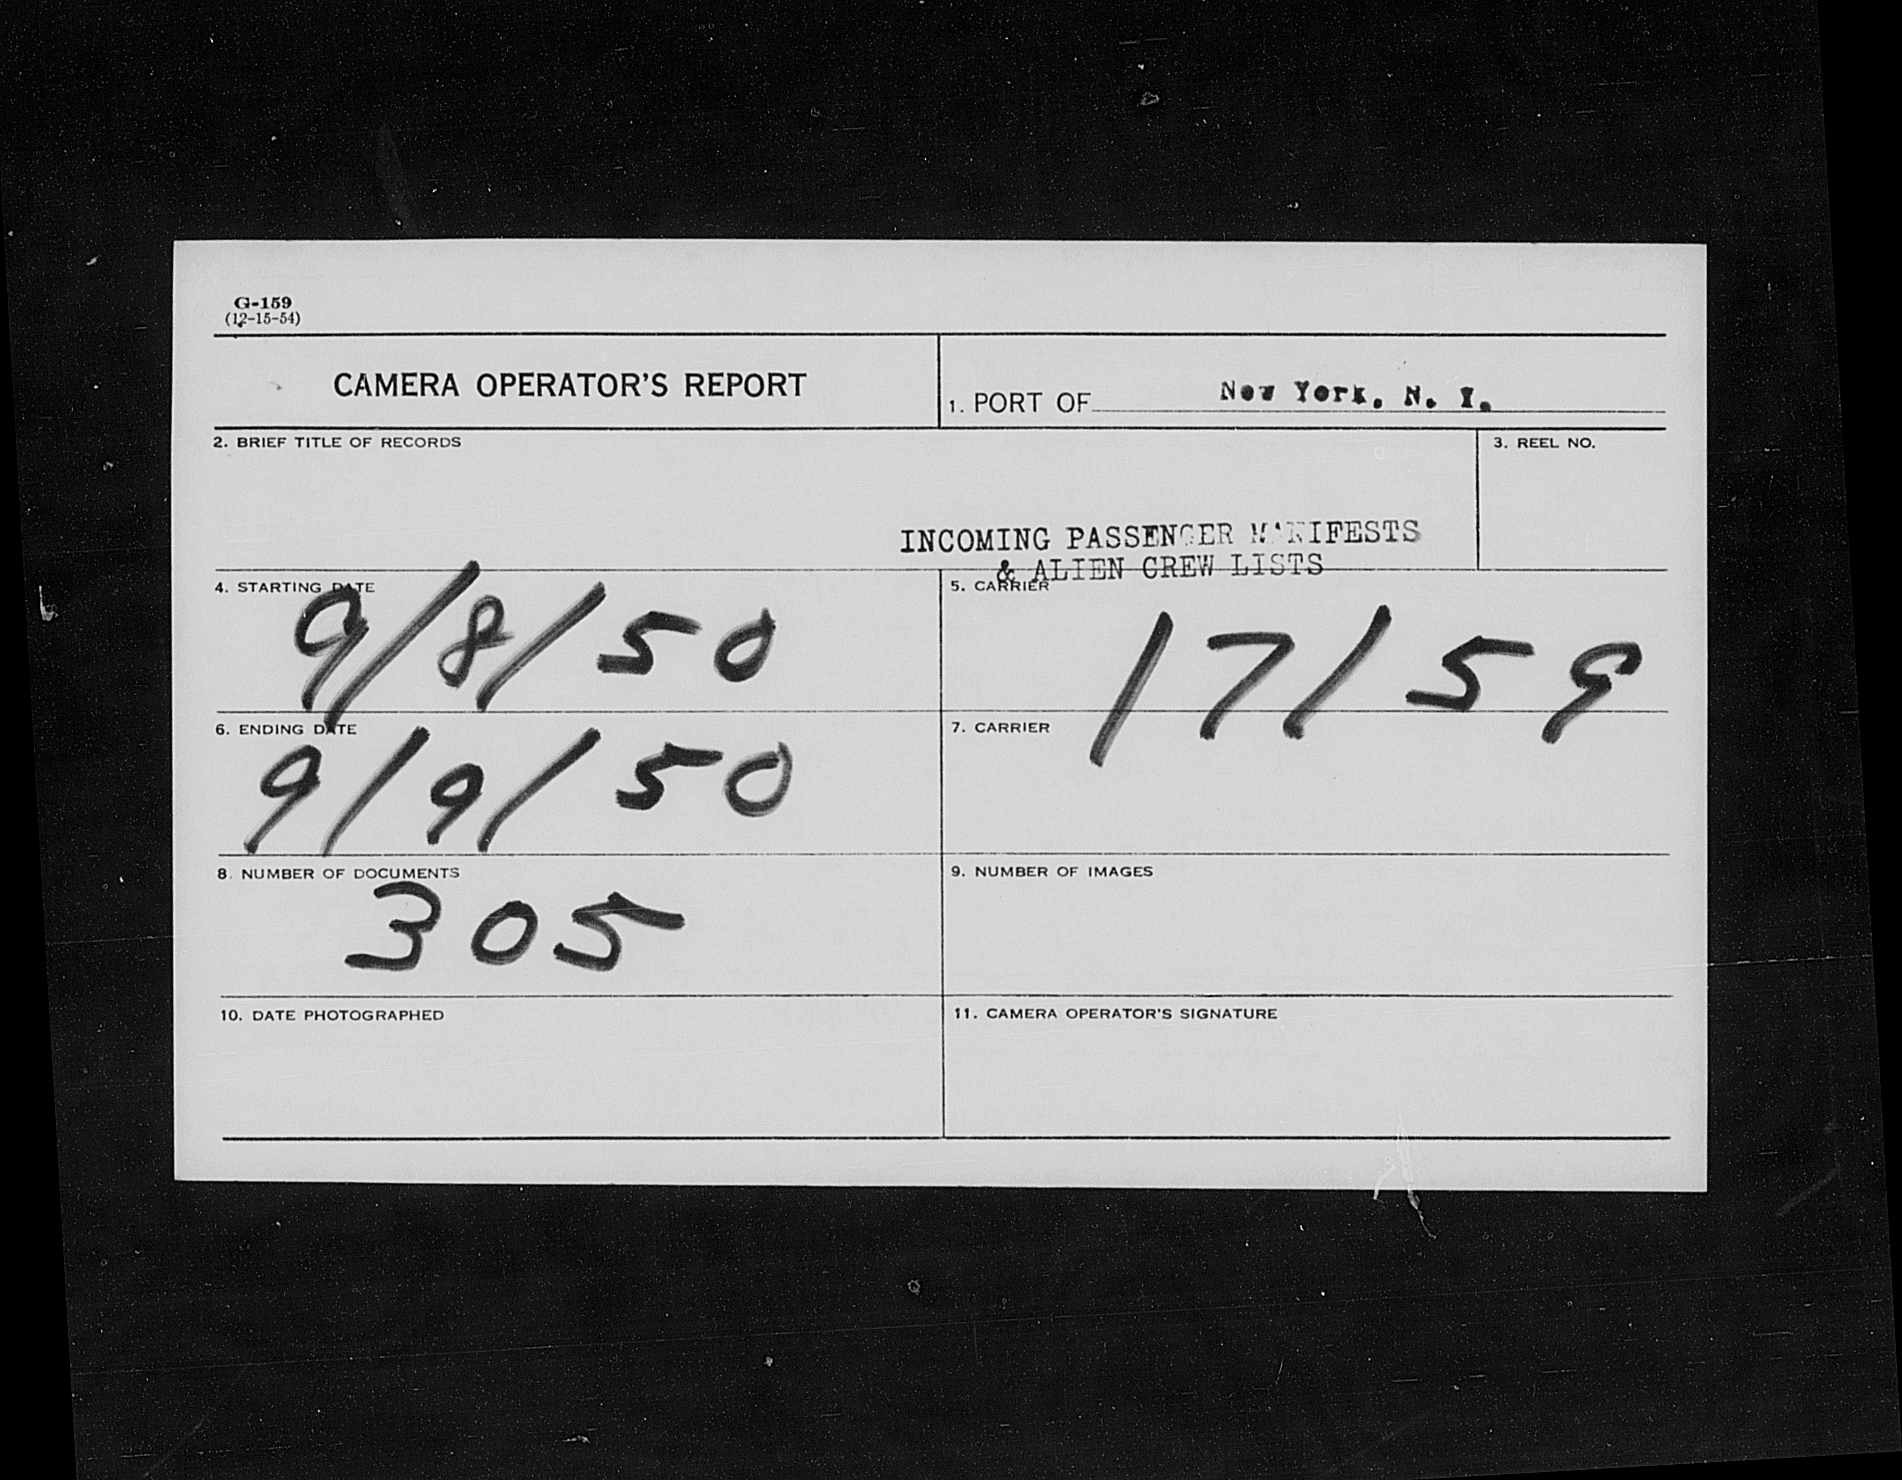 G-159
(12-15-54)
CAMERA OPERATOR'S REPORT
1. PORT OF New York, N. Y.
2. BRIEF TITLE OF RECORDS
3. REEL NO.
INCOMING PASSENGER MANIFESTS
& ALIEN CREW LISTS
4. STARTING DATE
9/8/50
5. CARRIER
17159
6. ENDING DATE
9/9/50
7. CARRIER
8. NUMBER OF DOCUMENTS
305
9. NUMBER OF IMAGES
10. DATE PHOTOGRAPHED
11. CAMERA OPERATOR'S SIGNATURE